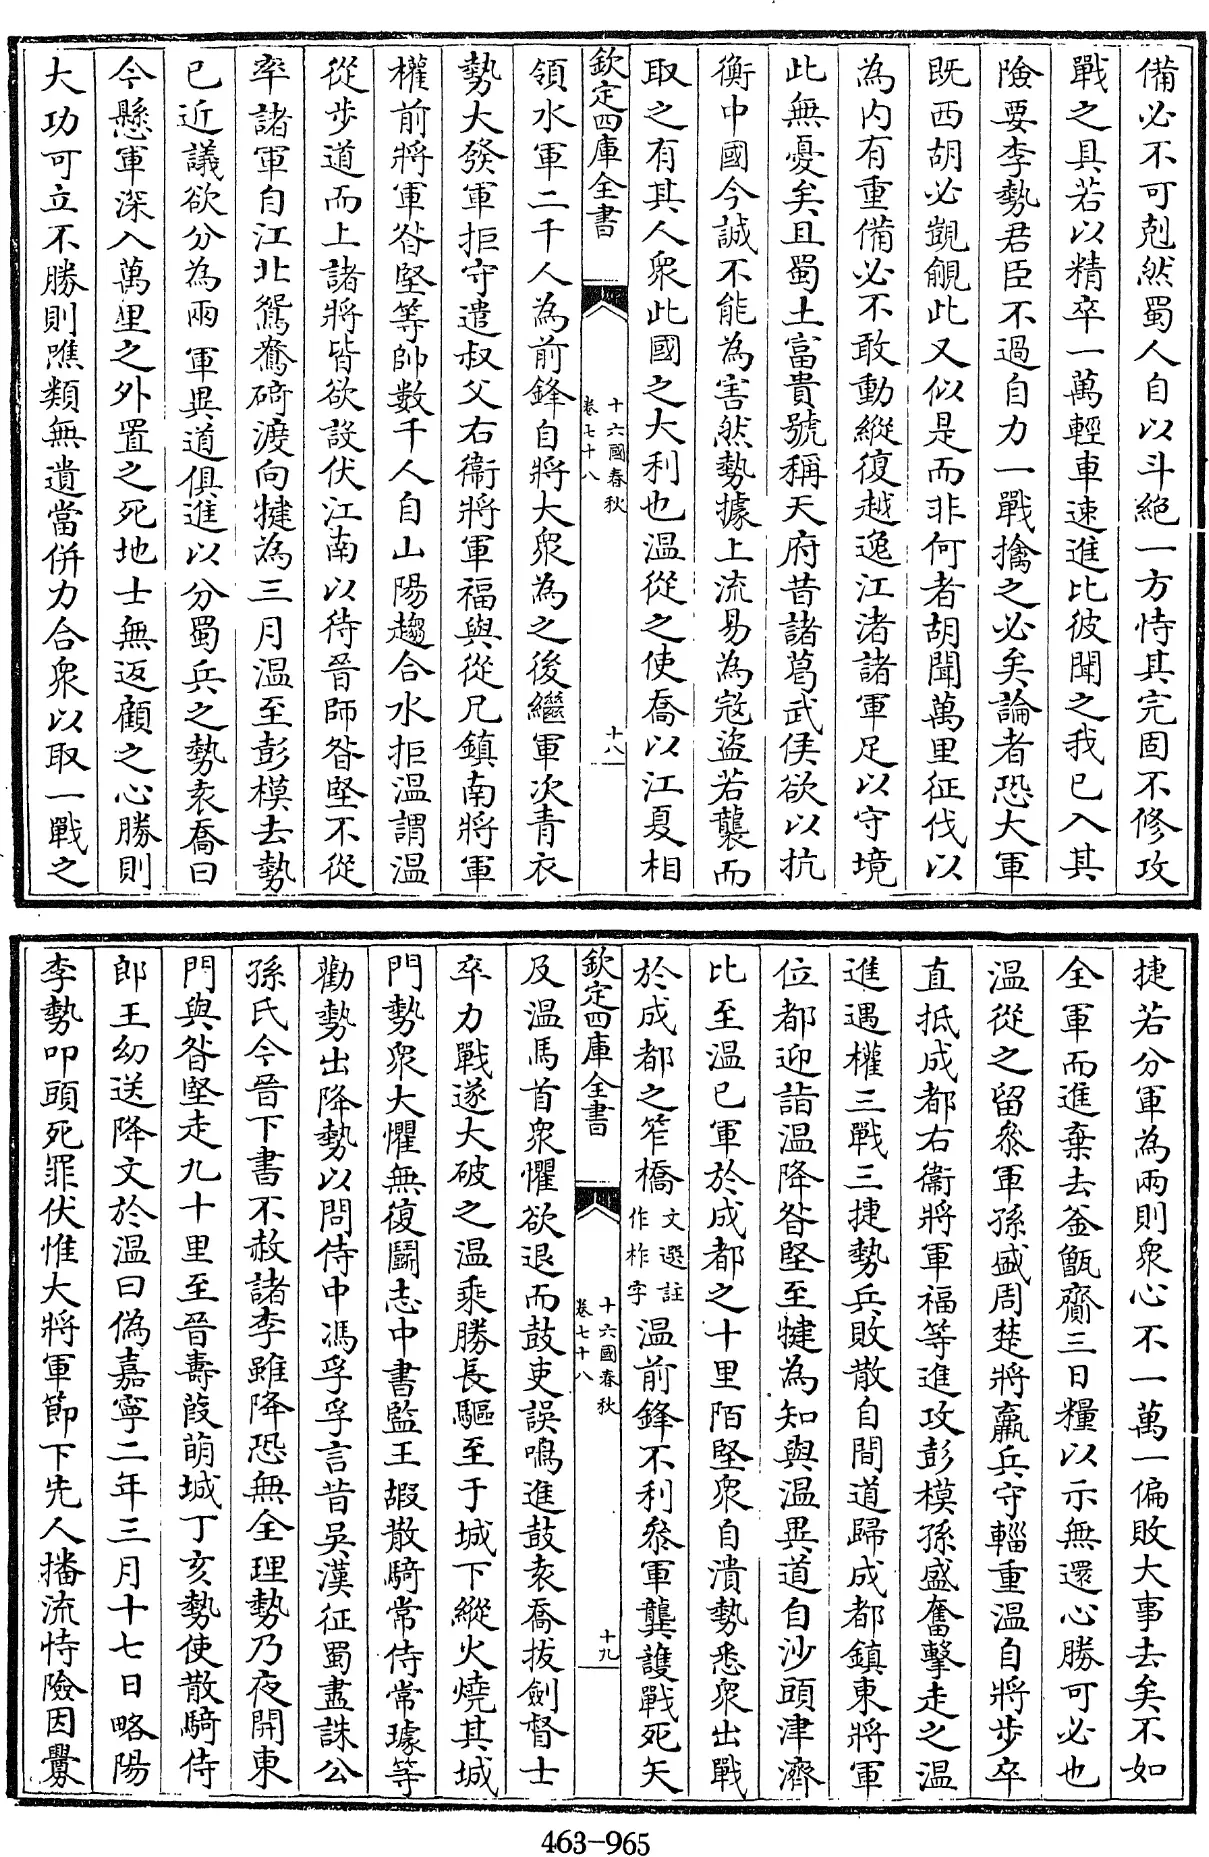 備必不可剋然蜀人自以斗絶一方恃其完固不修攻
戰之具若以精卒一萬輕車速進比彼聞之我已入其
險要李勢君臣不過自力一戰擒之必矣論者恐大軍
既西胡必覬覦此又似是而非何者胡聞萬里征伐以
為内有重備必不敢動縱復越逸江渚諸軍足以守境
此無憂矣且蜀土富貴號稱天府昔諸葛武侯欲以抗
衡中國今誠不能為害然勢據上流易為冦盗若襲而
取之有其人衆此國之大利也温從之使喬以江夏相
欽定四庫全書
十六國春秋
卷七十八
十八
領水軍二千人為前鋒自將大衆為之後繼軍次青衣
勢大發軍拒守遣叔父右衞將軍福與從兄鎮南將軍
權前將軍昝堅等帥數千人自山陽趨合水拒温謂温
從步道而上諸將皆欲設伏江南以待晉師昝堅不從
率諸軍自江北鴛鴦碕渡向犍為三月温至彭模去勢
已近議欲分為兩軍異道俱進以分蜀兵之勢袁喬曰
今懸軍深入萬里之外置之死地士無返顧之心勝則
大功可立不勝則噍類無遺當併力合衆以取一戰之
捷若分軍為兩則衆心不一萬一偏敗大事去矣不如
全軍而進棄去釜甑齎三日糧以示無還心勝可必也
温從之留叅軍孫盛周楚將羸兵守輜重温自將步卒
直抵成都右衞將軍福等進攻彭模孫盛奮擊走之温
進遇權三戰三捷勢兵敗散自間道歸成都鎮東將軍
位都迎詣温降昝堅至犍為知與温異道自沙頭津濟
比至温已軍於成都之十里陌堅衆自潰勢悉衆出戰
於成都之笮橋文選註作柞字温前鋒不利叅軍龔護戰死矢
欽定四庫全書
十六國春秋
卷七十八
十九
及温馬首衆懼欲退而鼓吏誤鳴進鼓袁喬拔劍督士
卒力戰遂大破之温乘勝長驅至于城下縱火燒其城
門勢衆大懼無復鬭志中書監王嘏散騎常侍常璩等
勸勢出降勢以問侍中馮孚孚言昔吳漢征蜀盡誅公
孫氏今晉下書不赦諸李雖降恐無全理勢乃夜開東
門與昝堅走九十里至晉壽葭萌城丁亥勢使散騎侍
郎王幼送降文於温曰偽嘉寧二年三月十七日略陽
李勢叩頭死罪伏惟大將軍節下先人播流恃險因釁
463-965